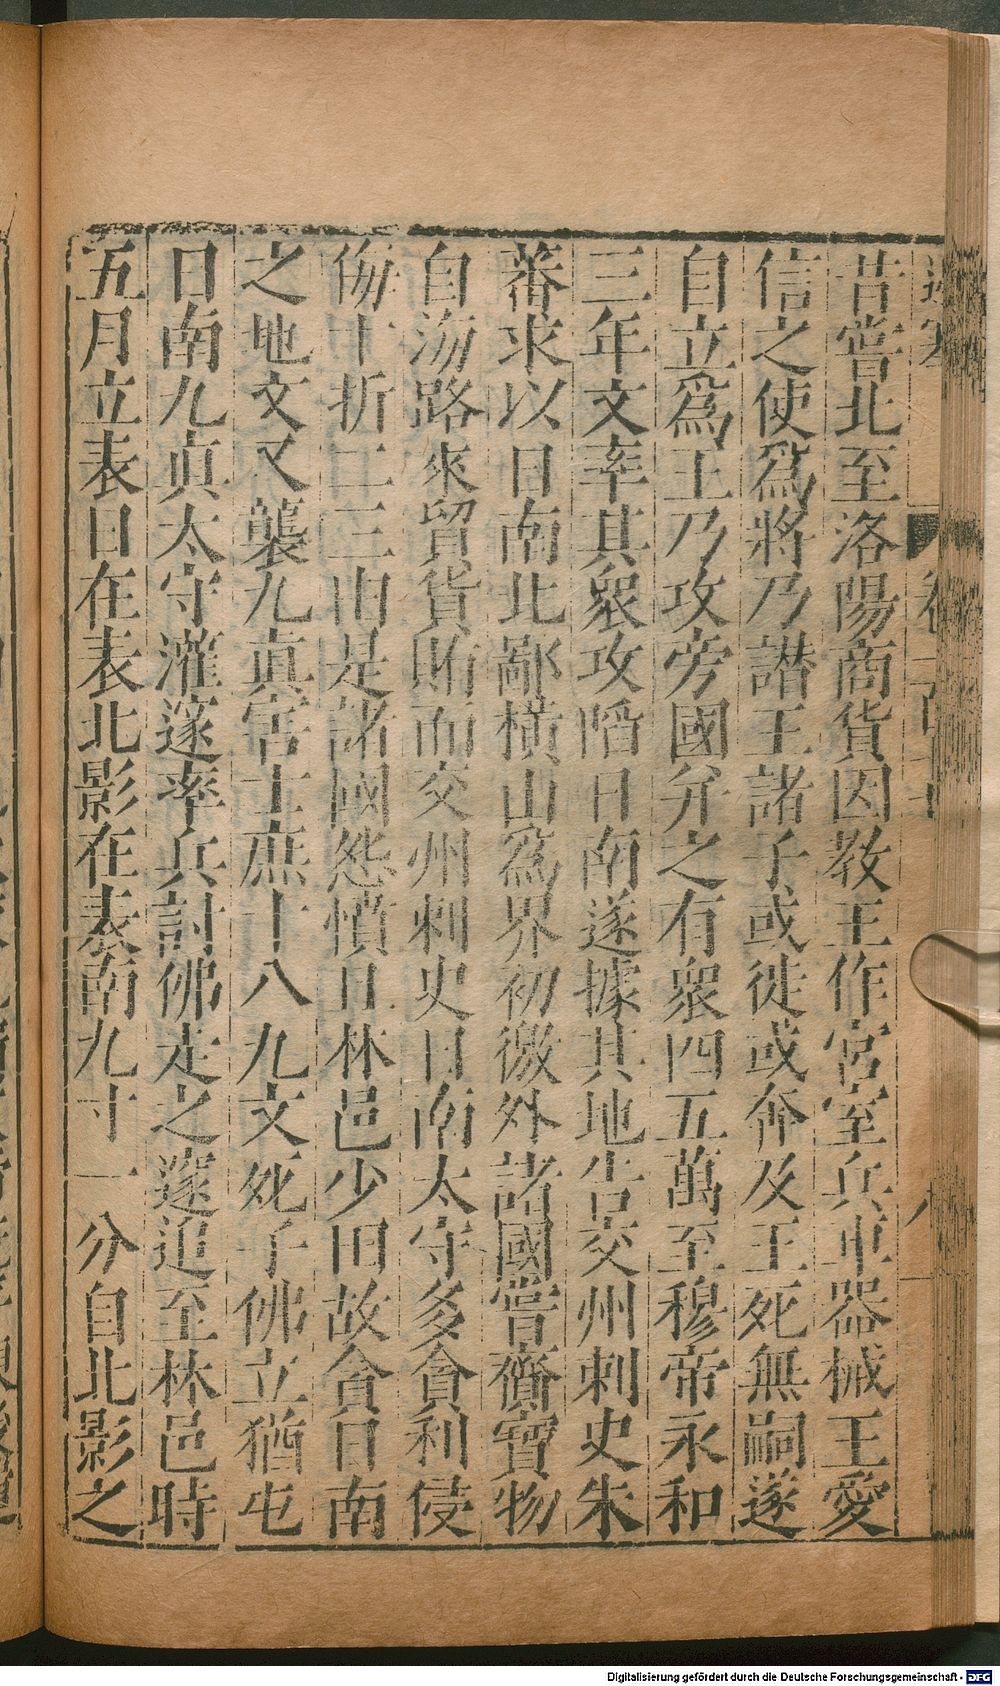 昔嘗北至洛陽商貨因教王作宮室兵車器械王愛
信之使爲將乃譖王諸子或徙或奔及王死無嗣遂
自立爲王乃攻旁國并之有衆四五萬至穆帝永和
三年文率其衆攻陷日南遂據其地告交州刺史朱
蕃求以日南北鄙橫山爲界初徼外諸國嘗齎寶物
自海路來貿貨賄而交州刺史日南太守多貪利侵
侮十折二三由是諸國怨憤且林邑少田故貪日南
之地文又襲九真害士庶十八九文死子佛立猶屯
日南九真太守灌邃率兵討佛走之邃追至林邑時
五月立表日在表北影在表南九寸一分自北影之
卷
八
Digitalisierung gefördert durch die Deutsche Forschungsgemeinschaft - DFG